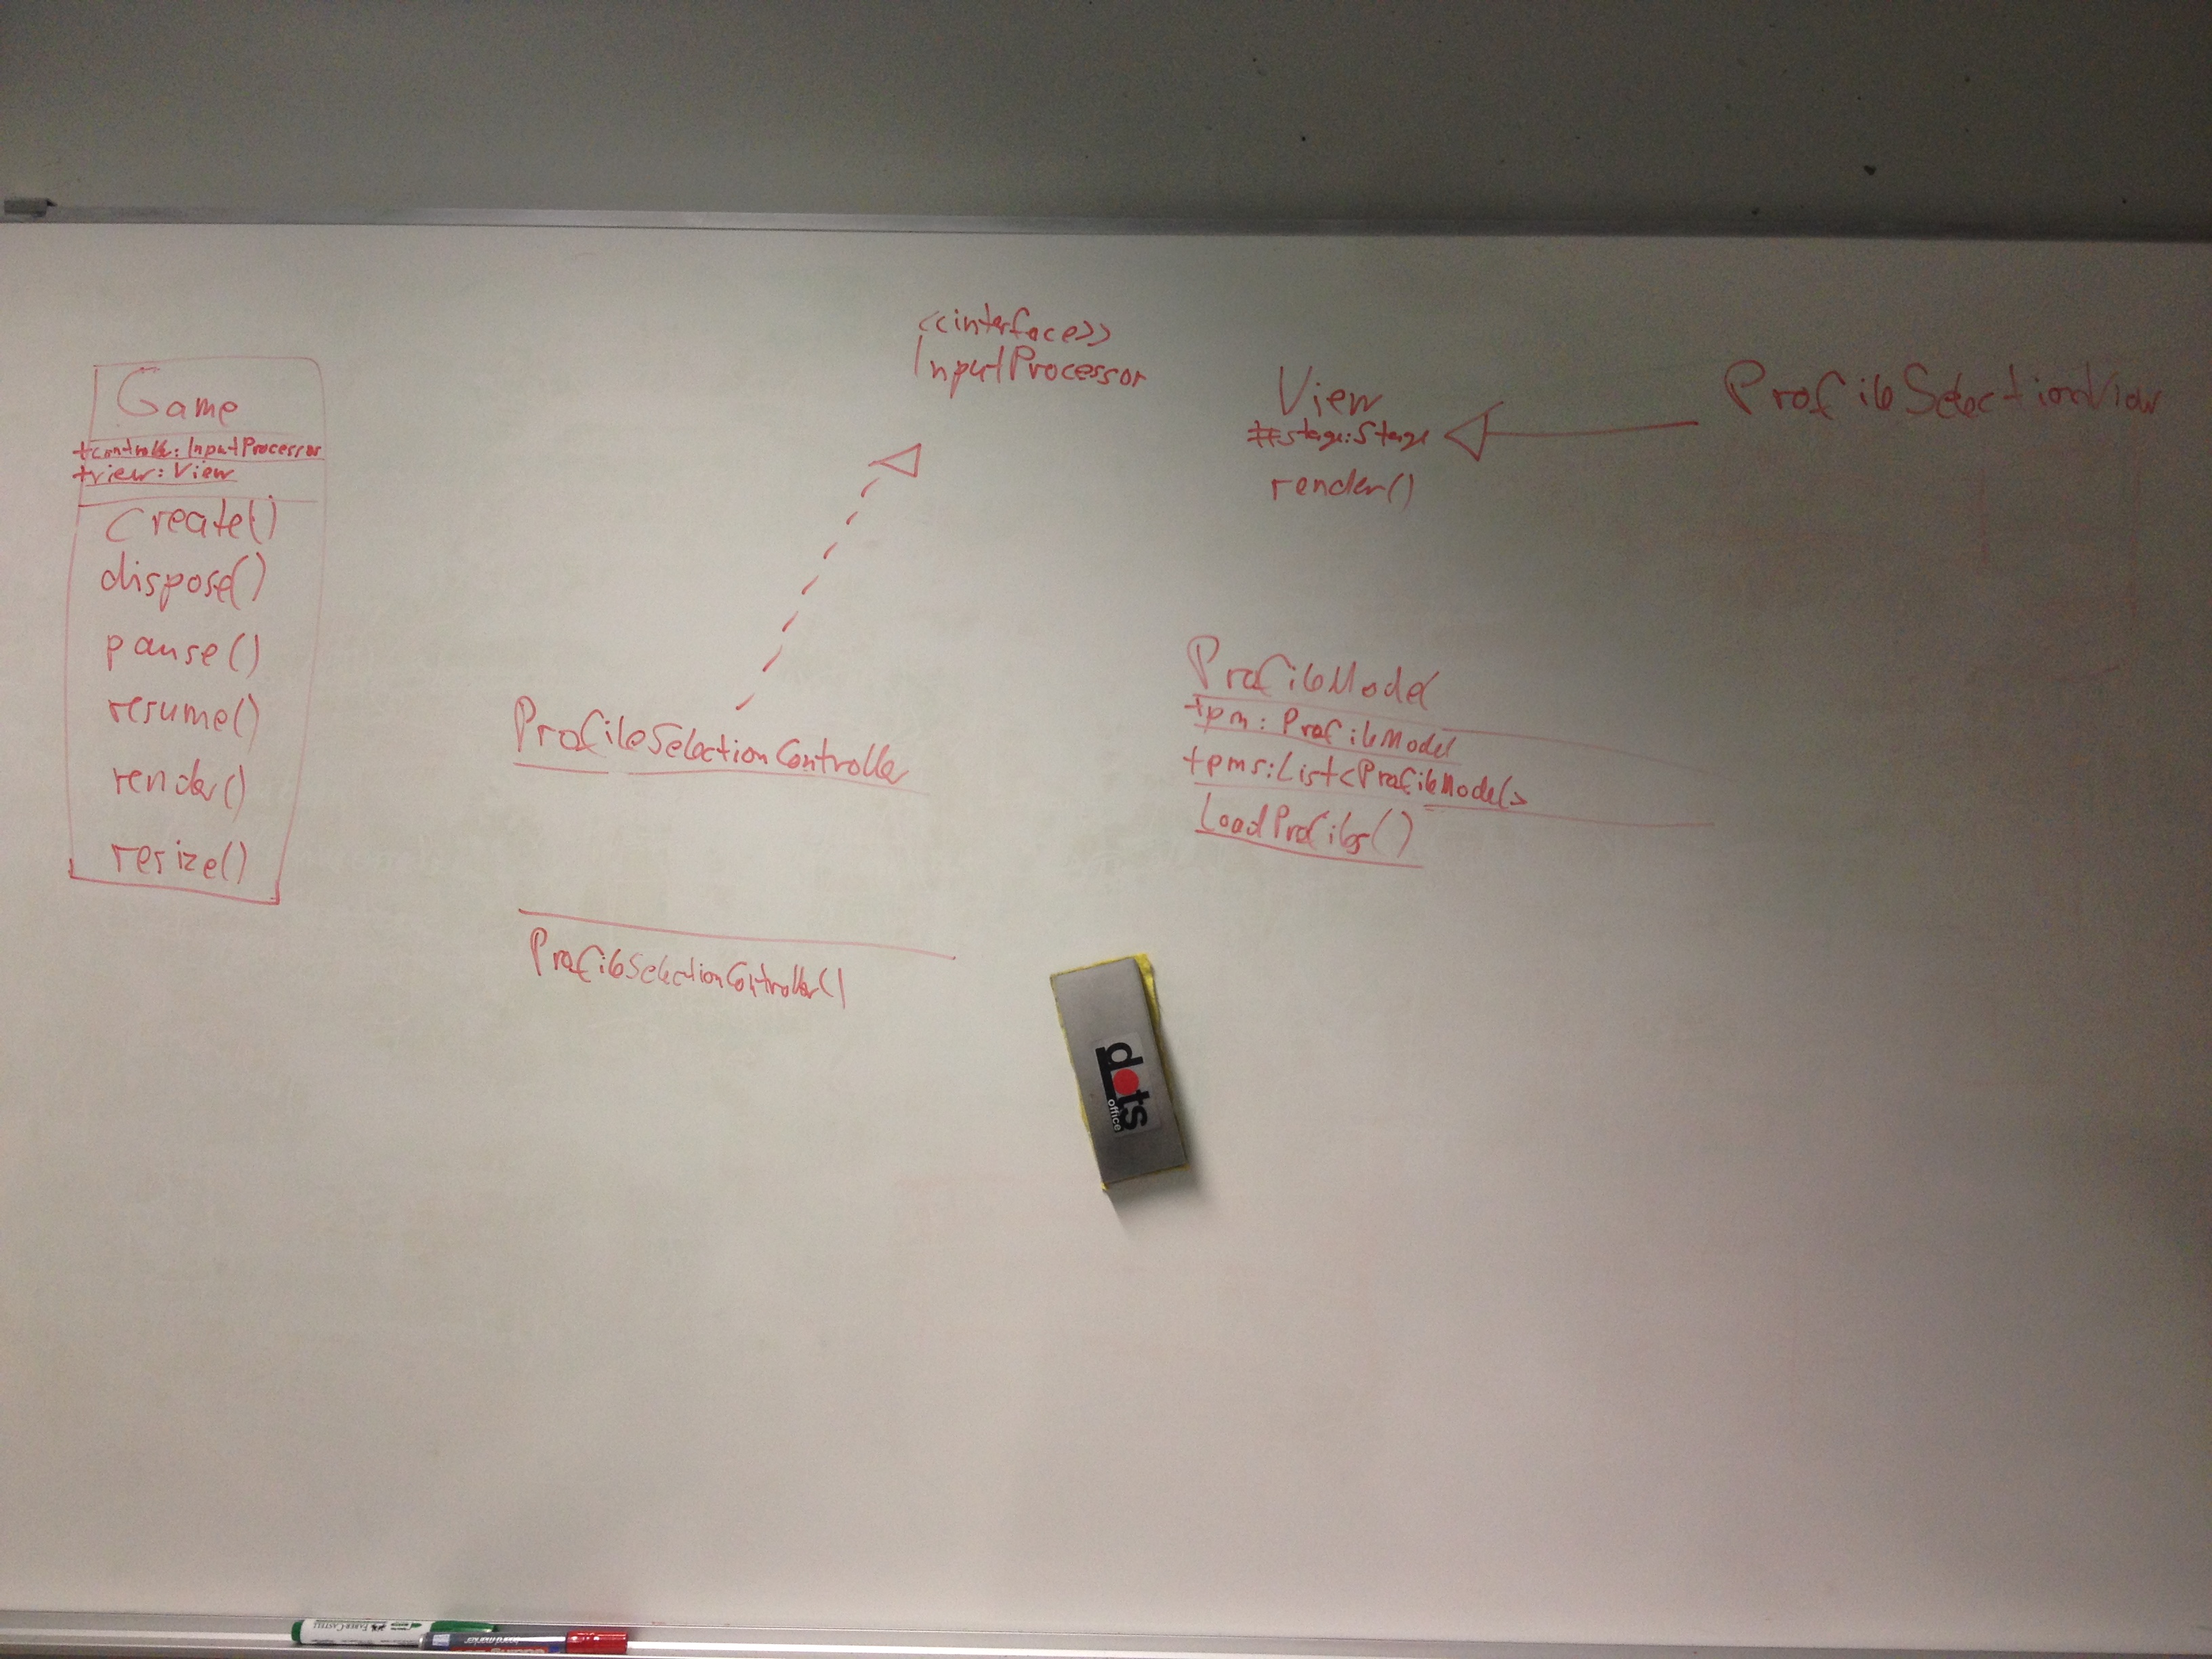 Game
+controller: InputProcessor
+view: View
create()
dispose()
pause()
resume()
render()
resize()
<<interface>>
InputProcessor
ProfileSelectionController
ProfileSelectionController()
View
#stage: Stage
render()
ProfileSelectionView
ProfileModel
+pm: ProfileModel
+pms: List<ProfileModel>
LoadProfiles()
dots
office
FABER-CASTELL
board marker